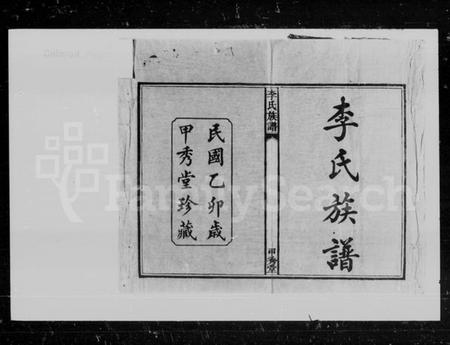 李氏族譜
李氏族譜
甲秀堂
民國乙卯歲
甲秀堂珍藏
FamilySearch